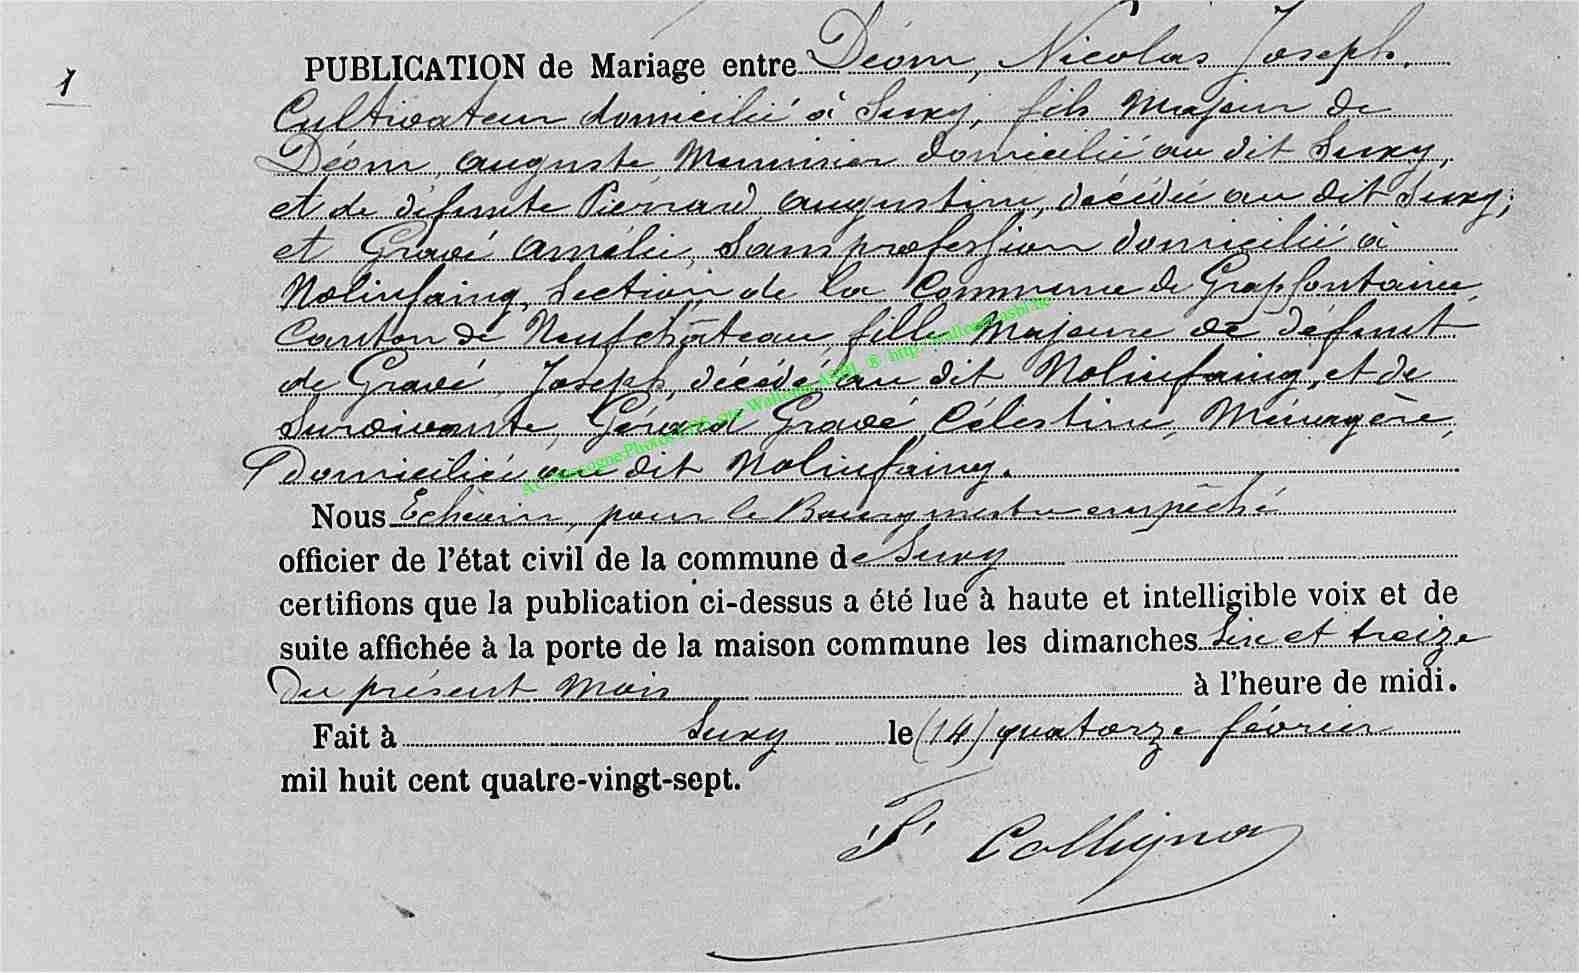 1
PUBLICATION de Mariage entre Déom, Nicolas Joseph,
Cultivateur domicilié à Suxy, fils Majeur de
Déom, auguste, Menuisier domicilié au dit Suxy,
et de défunte Piérrard, augustine, décédée au dit Suxy;
et Gravé amélie, Sans profession domicilié à
Nolinfaing, Section de la Commune de Grapfontaine,
Canton de Neufchâteau, fille Majeure de défunt
de Gravé, Joseph, décédé au dit Nolinfaing, et de
Survivante, Gérard Gravé Célestine, Ménagère,
domiciliée au dit Nolinfaing.
Nous Echevin, pour le Bourgmestre empêché
officier de l'état civil de la commune de Suxy
certifions que la publication ci-dessus a été lue à haute et intelligible voix et de
suite affichée à la porte de la maison commune les dimanches Six et treize
du présent Mois à l'heure de midi.
Fait à Suxy le (14) quatorze février
mil huit cent quatre-vingt-sept.
Collignon